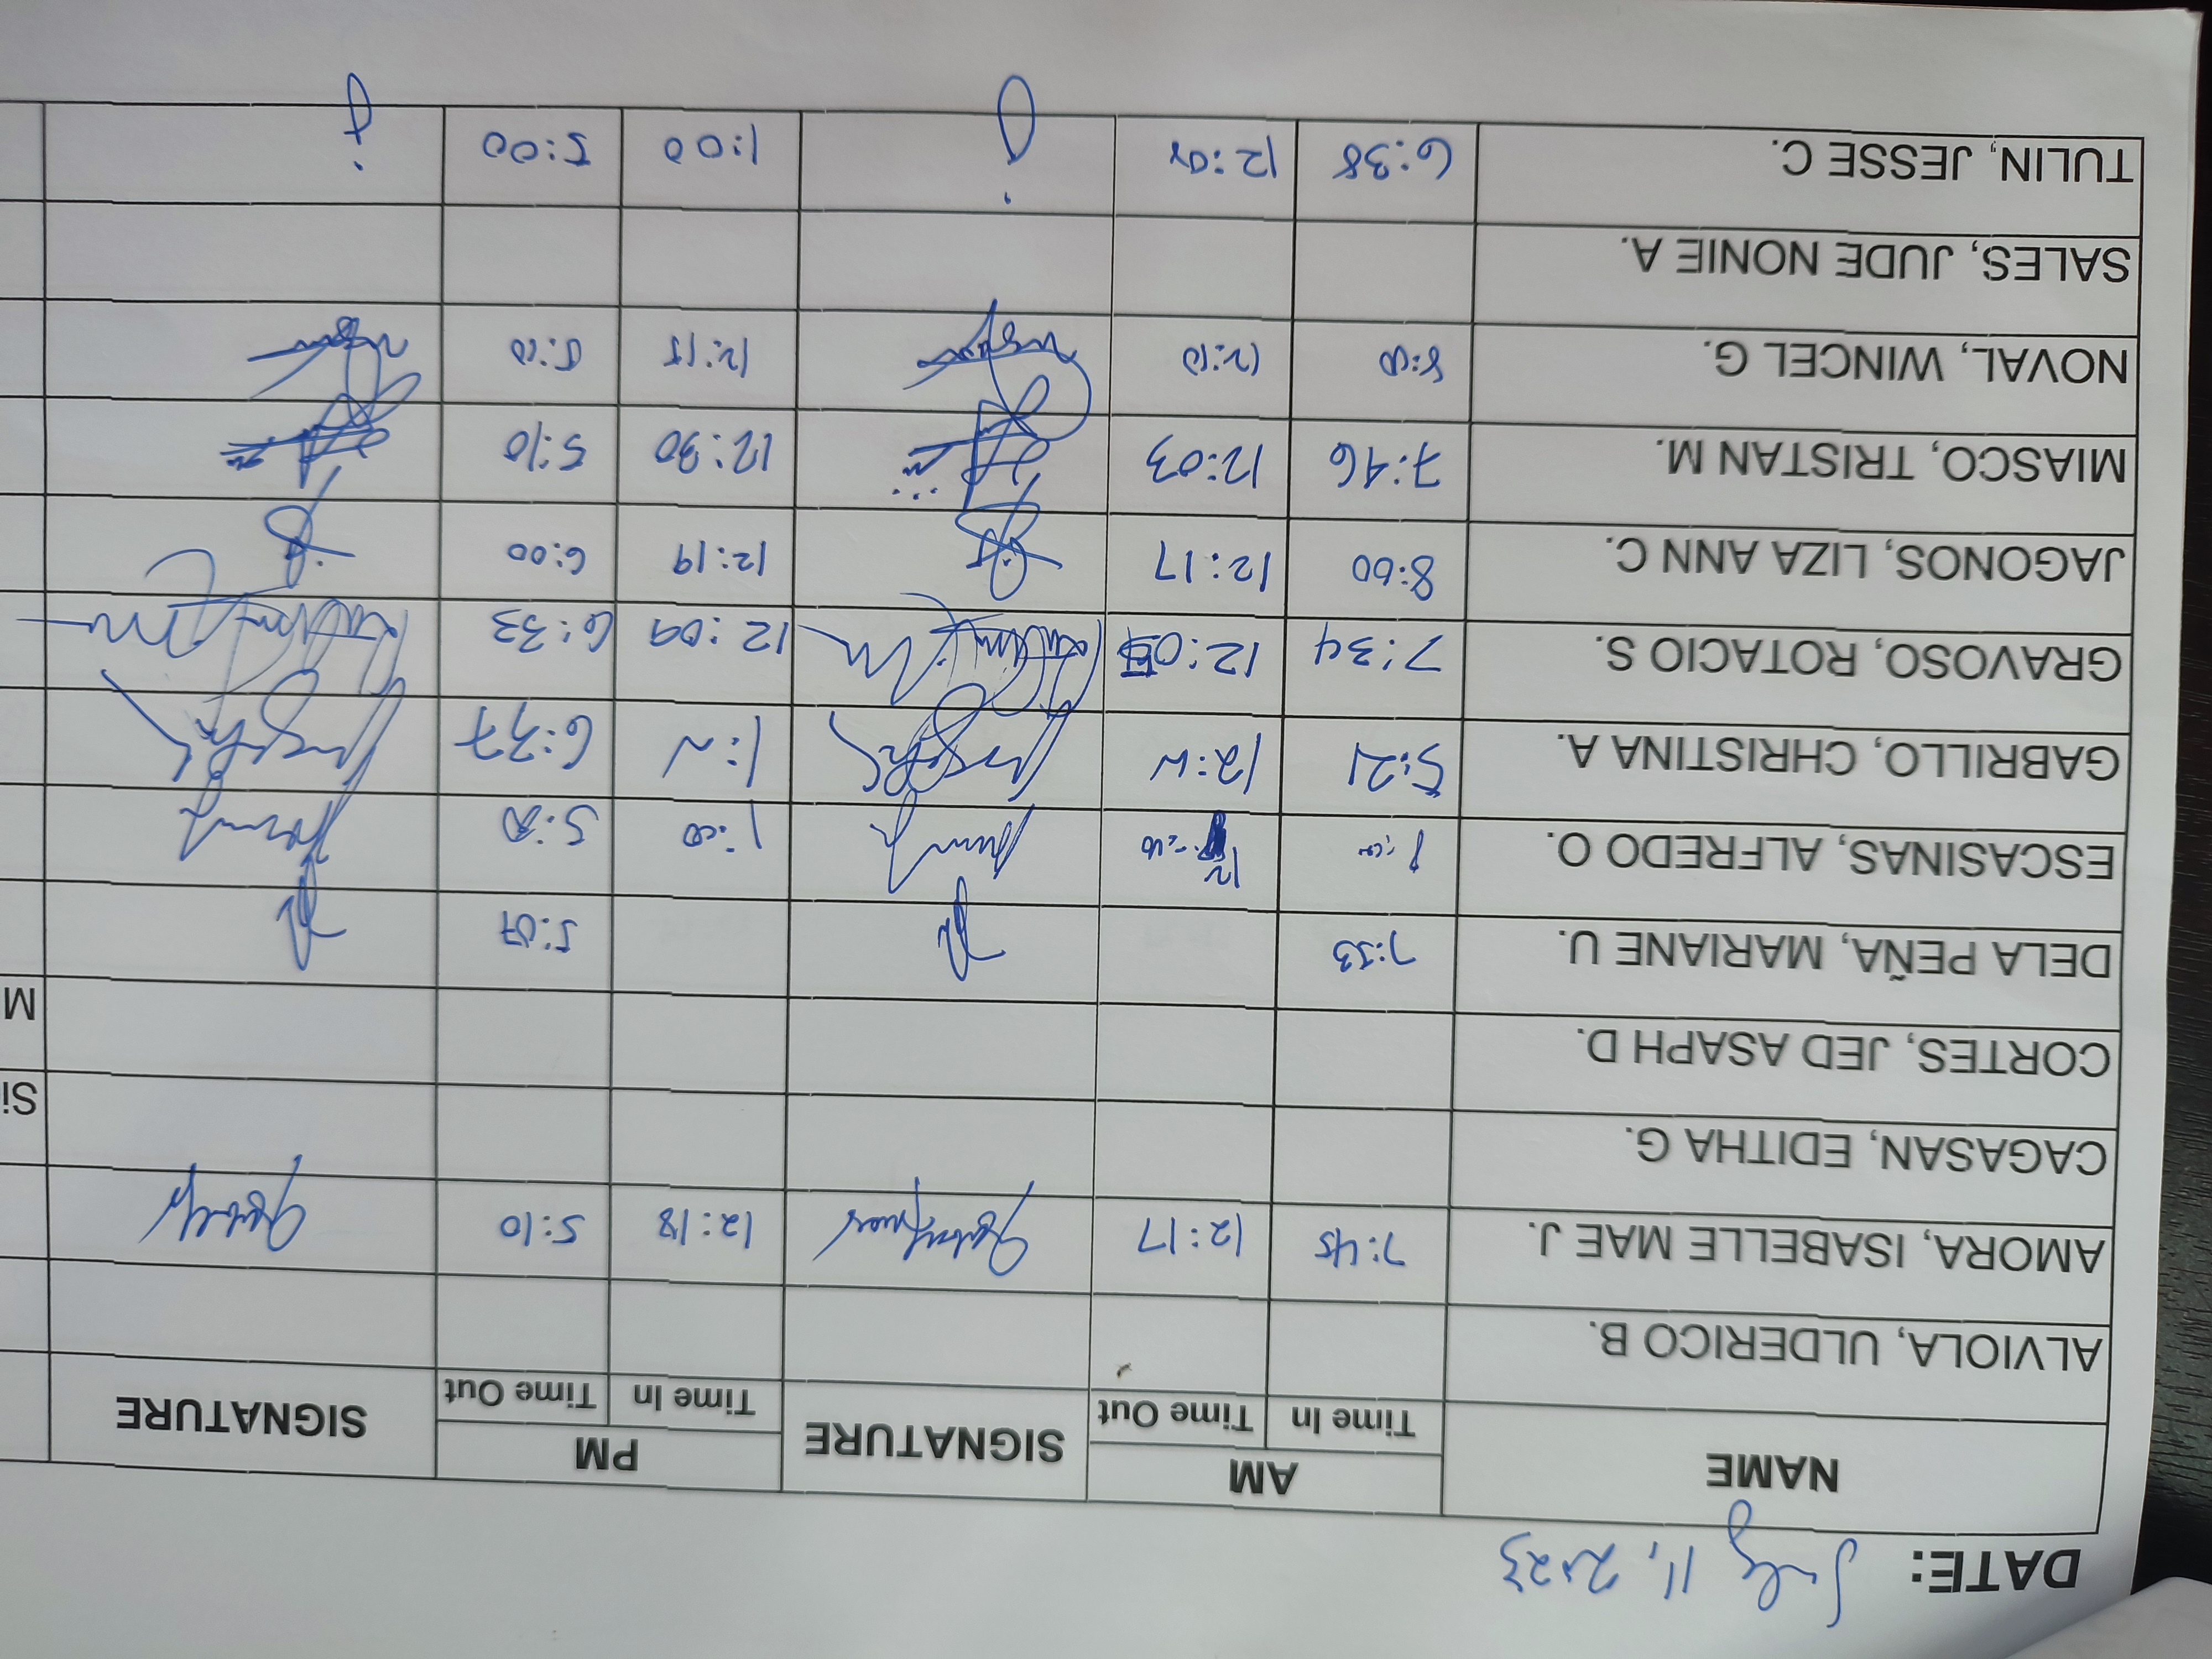 DATE: July 11, 2023
NAME AM SIGNATURE PM SIGNATURE
Time In Time Out Time In Time Out
ALVIOLA, ULDERICO B.
AMORA, ISABELLE MAE J. 7:45 12:17 12:18 5:10
CAGASAN, EDITHA G.
Si
CORTES, JED ASAPH D.
M
DELA PEÑA, MARIANE U. 7:53 5:07
ESCASINAS, ALFREDO O. 1:00
GABRILLO, CHRISTINA A. 5:21 6:37
GRAVOSO, ROTACIO S. 7:34 12:09 6:33
JAGONOS, LIZA ANN C. 8:00 12:17 12:19 6:00
MIASCO, TRISTAN M. 7:46 12:03 12:30 5:10
NOVAL, WINCEL G. 8:00 12:10 12:15 5:00
SALES, JUDE NONIE A.
TULIN, JESSE C. 6:38 1:00 5:00